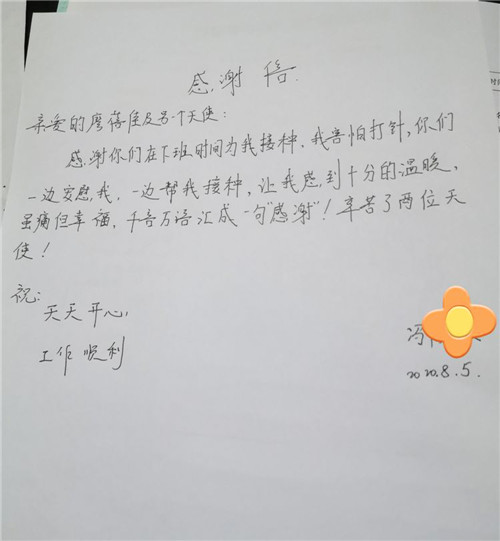 感谢信
亲爱的廖蓓佳及另一个天使:
感谢你们在下班时间为我接种,我害怕打针,你们
一边安慰我,一边帮我接种,让我感到十分的温暖,
虽痛但幸福,千言万语汇成一句"感谢"!辛苦了两位天
使!
祝:
天天开心,
工作顺利
冯
2020.8.5.